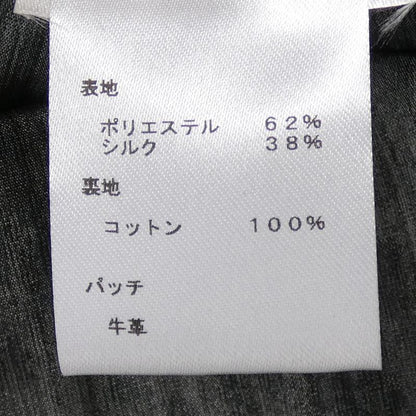 表地
ポリエステル 62%
シルク 38%
裏地
コットン 100%
パッチ
牛革